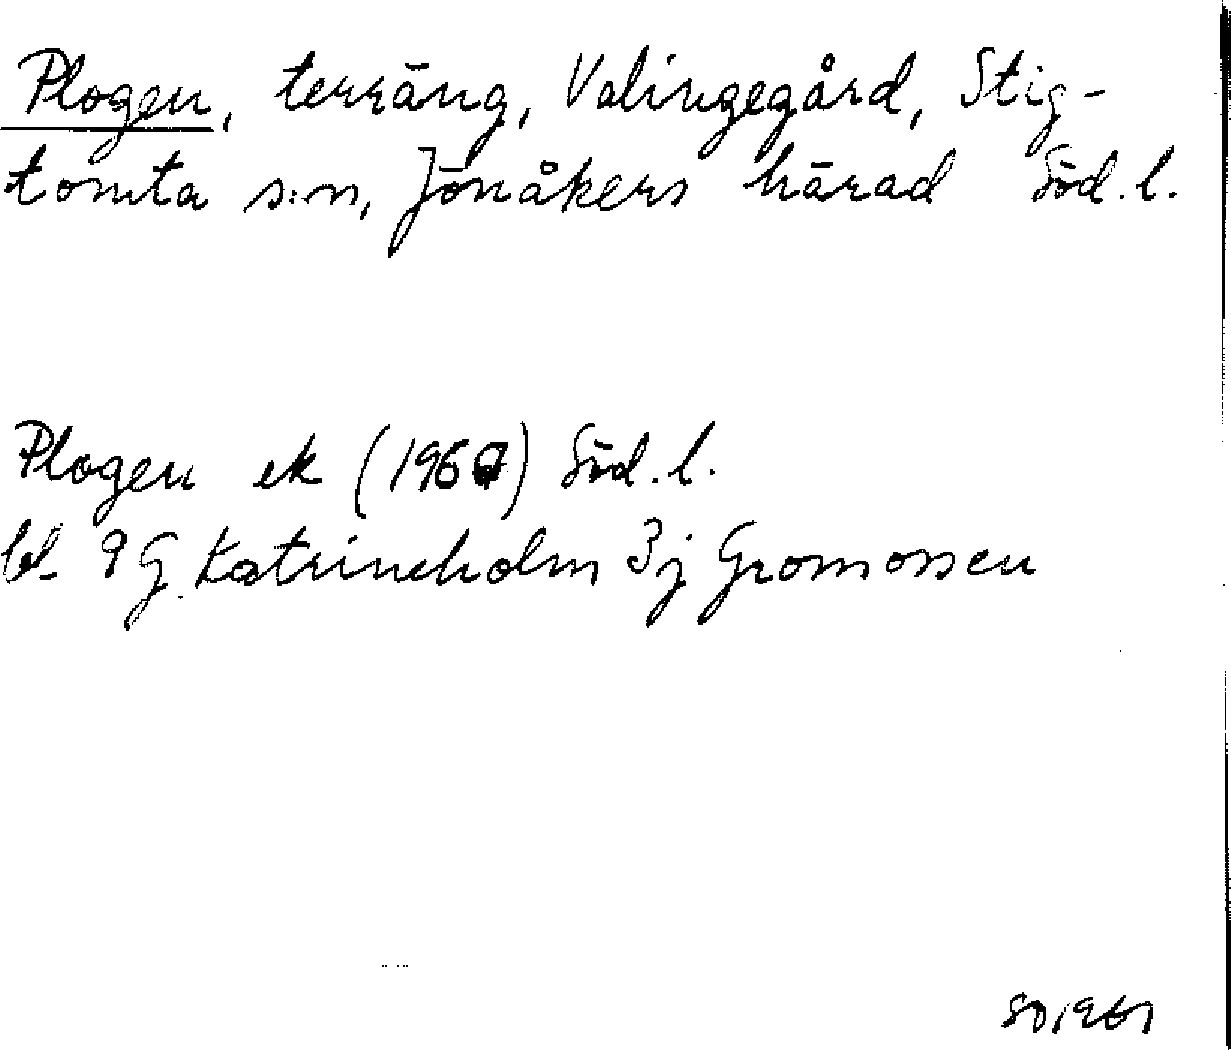 Plogen, terräng, Valingegård, Stig-
tomta s:n, Jönåkers härad Söd. l.
Plogen ek (1967) Söd. l.
bl. 9 G Katrineholm 3j Gromossen